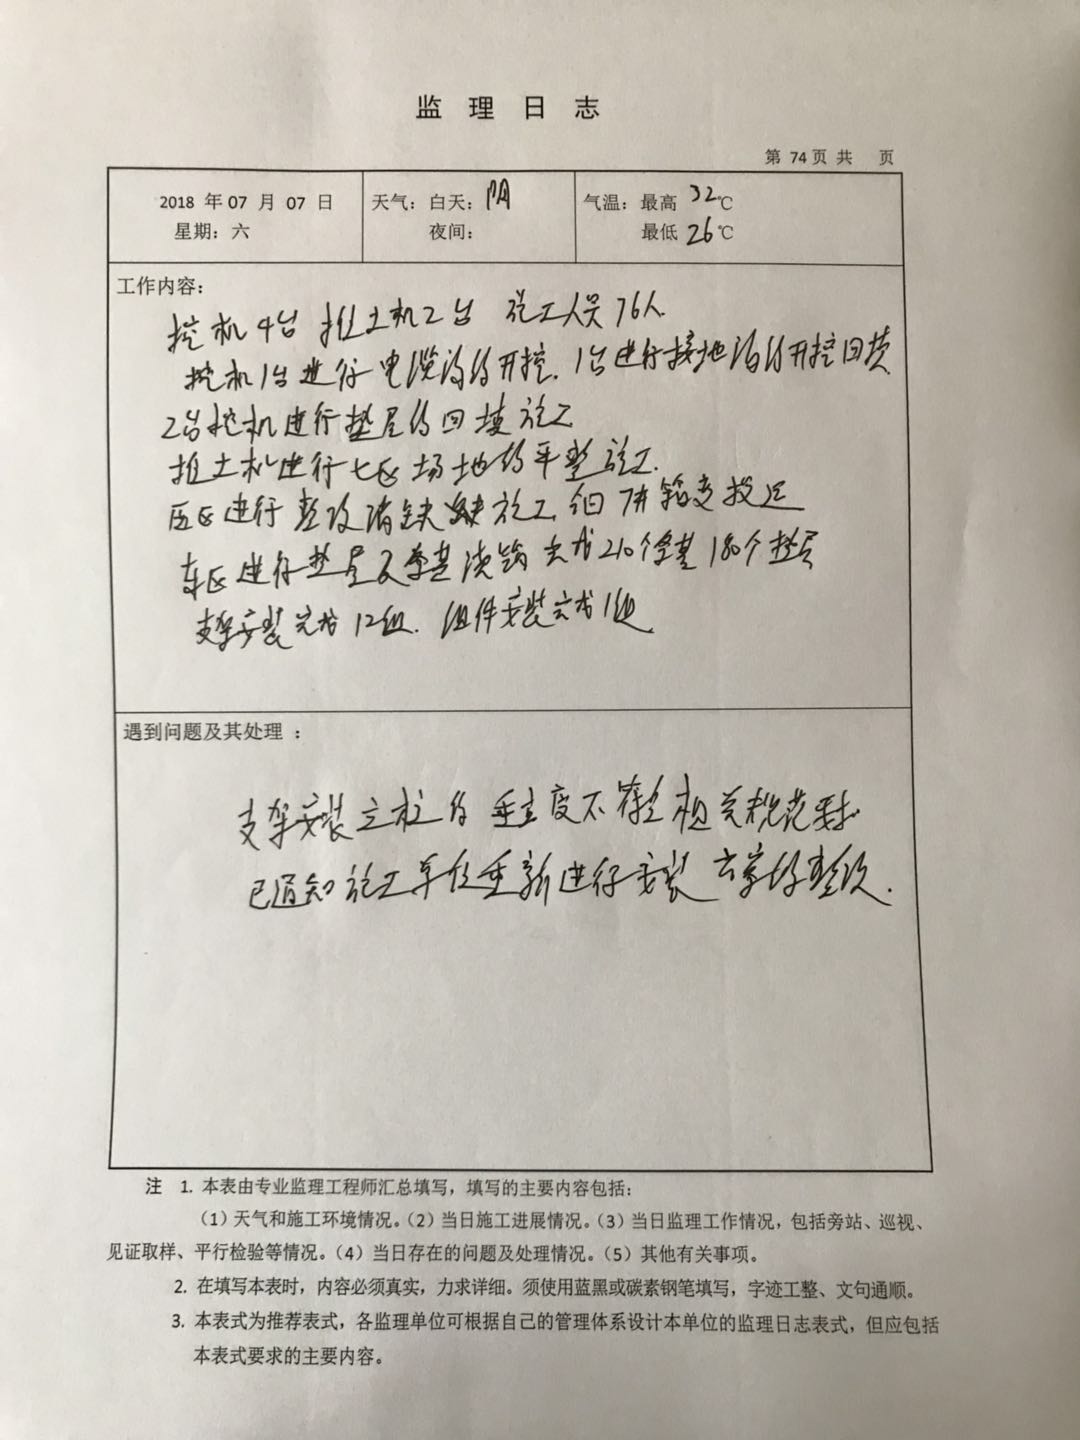 监 理 日 志
第 74页 共 页
2018 年 07 月 07 日
星期：六
天气：白天：阴
夜间：
气温：最高 32℃
最低 26℃
工作内容：
挖机4台 推土机2台 施工人员76人.
挖机1台进行电缆沟的开挖. 1台进行接地沟的开挖回填
2台挖机进行垫层的回填施工
推土机进行七区场地的平整施工.
五区进行整改消缺施工 7#箱变投运
东区进行垫层及条基浇筑 完成210个条基 180个垫层
支架安装完成12组. 组件安装完成1组
遇到问题及其处理 ：
支架安装立柱的垂直度不符合相关规范要求
已通知施工单位重新进行安装 整改.
注 1. 本表由专业监理工程师汇总填写，填写的主要内容包括：
（1）天气和施工环境情况。（2）当日施工进展情况。（3）当日监理工作情况，包括旁站、巡视、
见证取样、平行检验等情况。（4）当日存在的问题及处理情况。（5）其他有关事项。
2. 在填写本表时，内容必须真实，力求详细。须使用蓝黑或碳素钢笔填写，字迹工整、文句通顺。
3. 本表式为推荐表式，各监理单位可根据自己的管理体系设计本单位的监理日志表式，但应包括
本表式要求的主要内容。